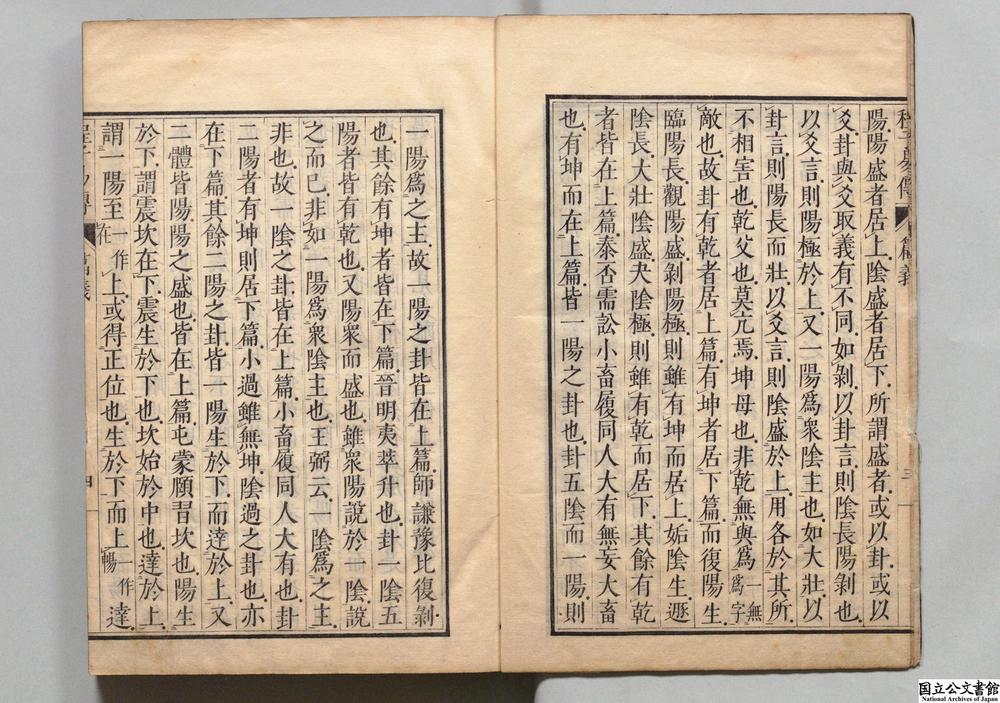 陽陽盛者居上陰盛者居下所謂盛者或以卦或以
爻卦與爻取義有不同如剥以卦言則陰長陽剥也
以爻言則陽極於上又一陽爲衆陰主也如大壯以
卦言則陽長而壯以爻言則陰盛於上用各於其所
不相害也乾父也莫亢焉坤母也非乾無與爲一無爲字
敵也故卦有乾者居上篇有坤者居下篇而復陽生
臨陽長觀陽盛剥陽極則雖有坤而居上姤陰生遯
陰長大壯陰盛夬陰極則雖有乾而居下其餘有乾
者皆在上篇泰否需訟小畜履同人大有無妄大畜
也有坤而在上篇皆一陽之卦也卦五陰而一陽則
程子易傳
篇義
三
一陽爲之主故一陽之卦皆在上篇師謙豫比復剥
也其餘有坤者皆在下篇晉明夷萃升也卦一陰五
陽者皆有乾也又陽衆而盛也雖衆陽說於一陰說
之而已非如一陽爲衆陰主也王弼云一陰爲之主
非也故一陰之卦皆在上篇小畜履同人大有也卦
二陽者有坤則居下篇小過雖無坤陰過之卦也亦
在下篇其餘二陽之卦皆一陽生於下而達於上又
二體皆陽陽之盛也皆在上篇屯蒙頤習坎也陽生
於下謂震坎在下震生於下也坎始於中也達於上
謂一陽至一作在上或得正位也生於下而上一作暢達
四
国立公文書館
National Archives of Japan